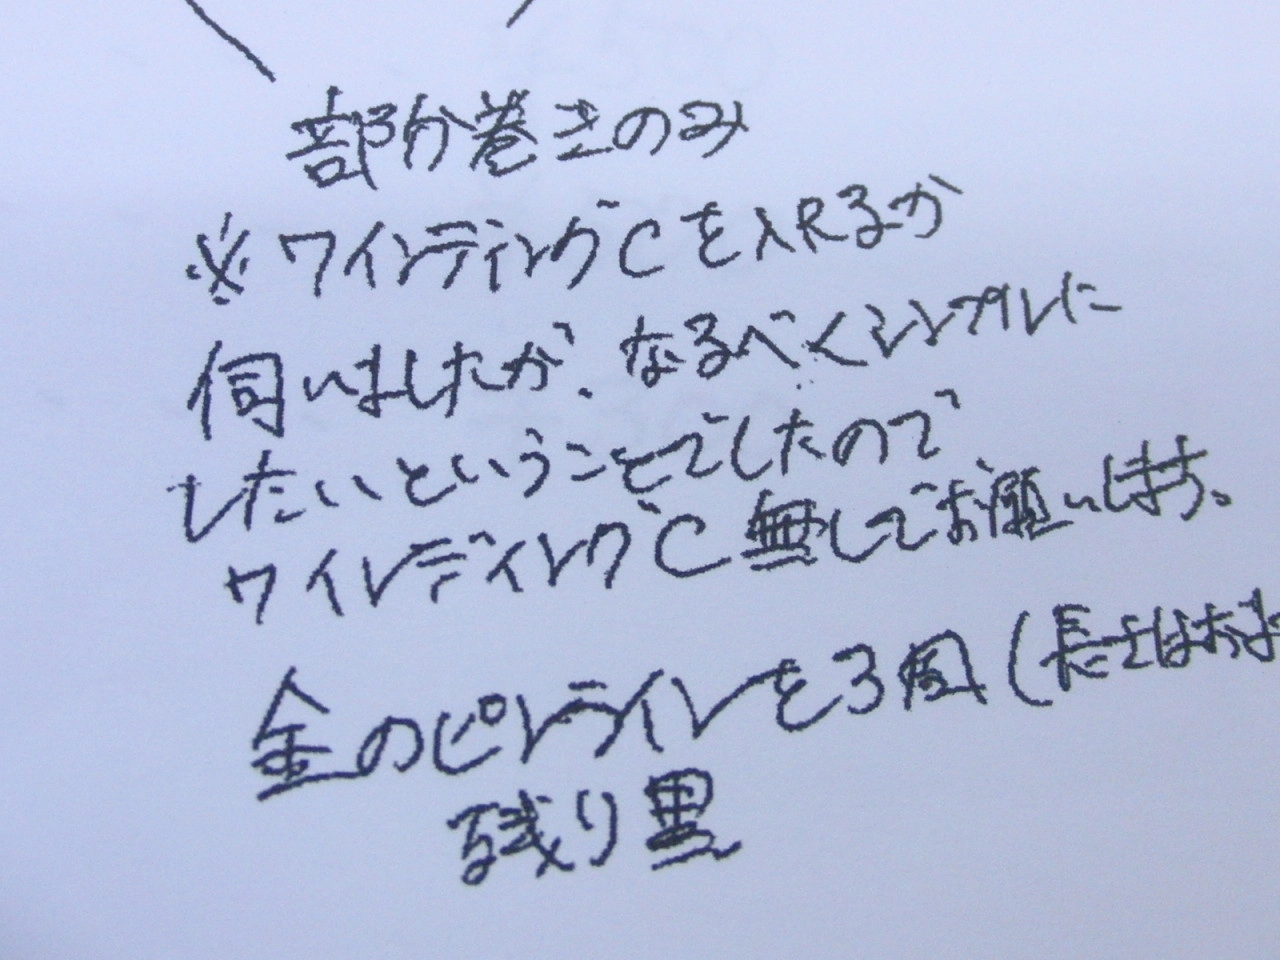 部分巻きのみ
※ワインディングCを入れるか
伺いましたが、なるべくシンプルに
したいということでしたので
ワインディングC無しでお願いします。
金のピンラインを3周(長さはおま
残り黒